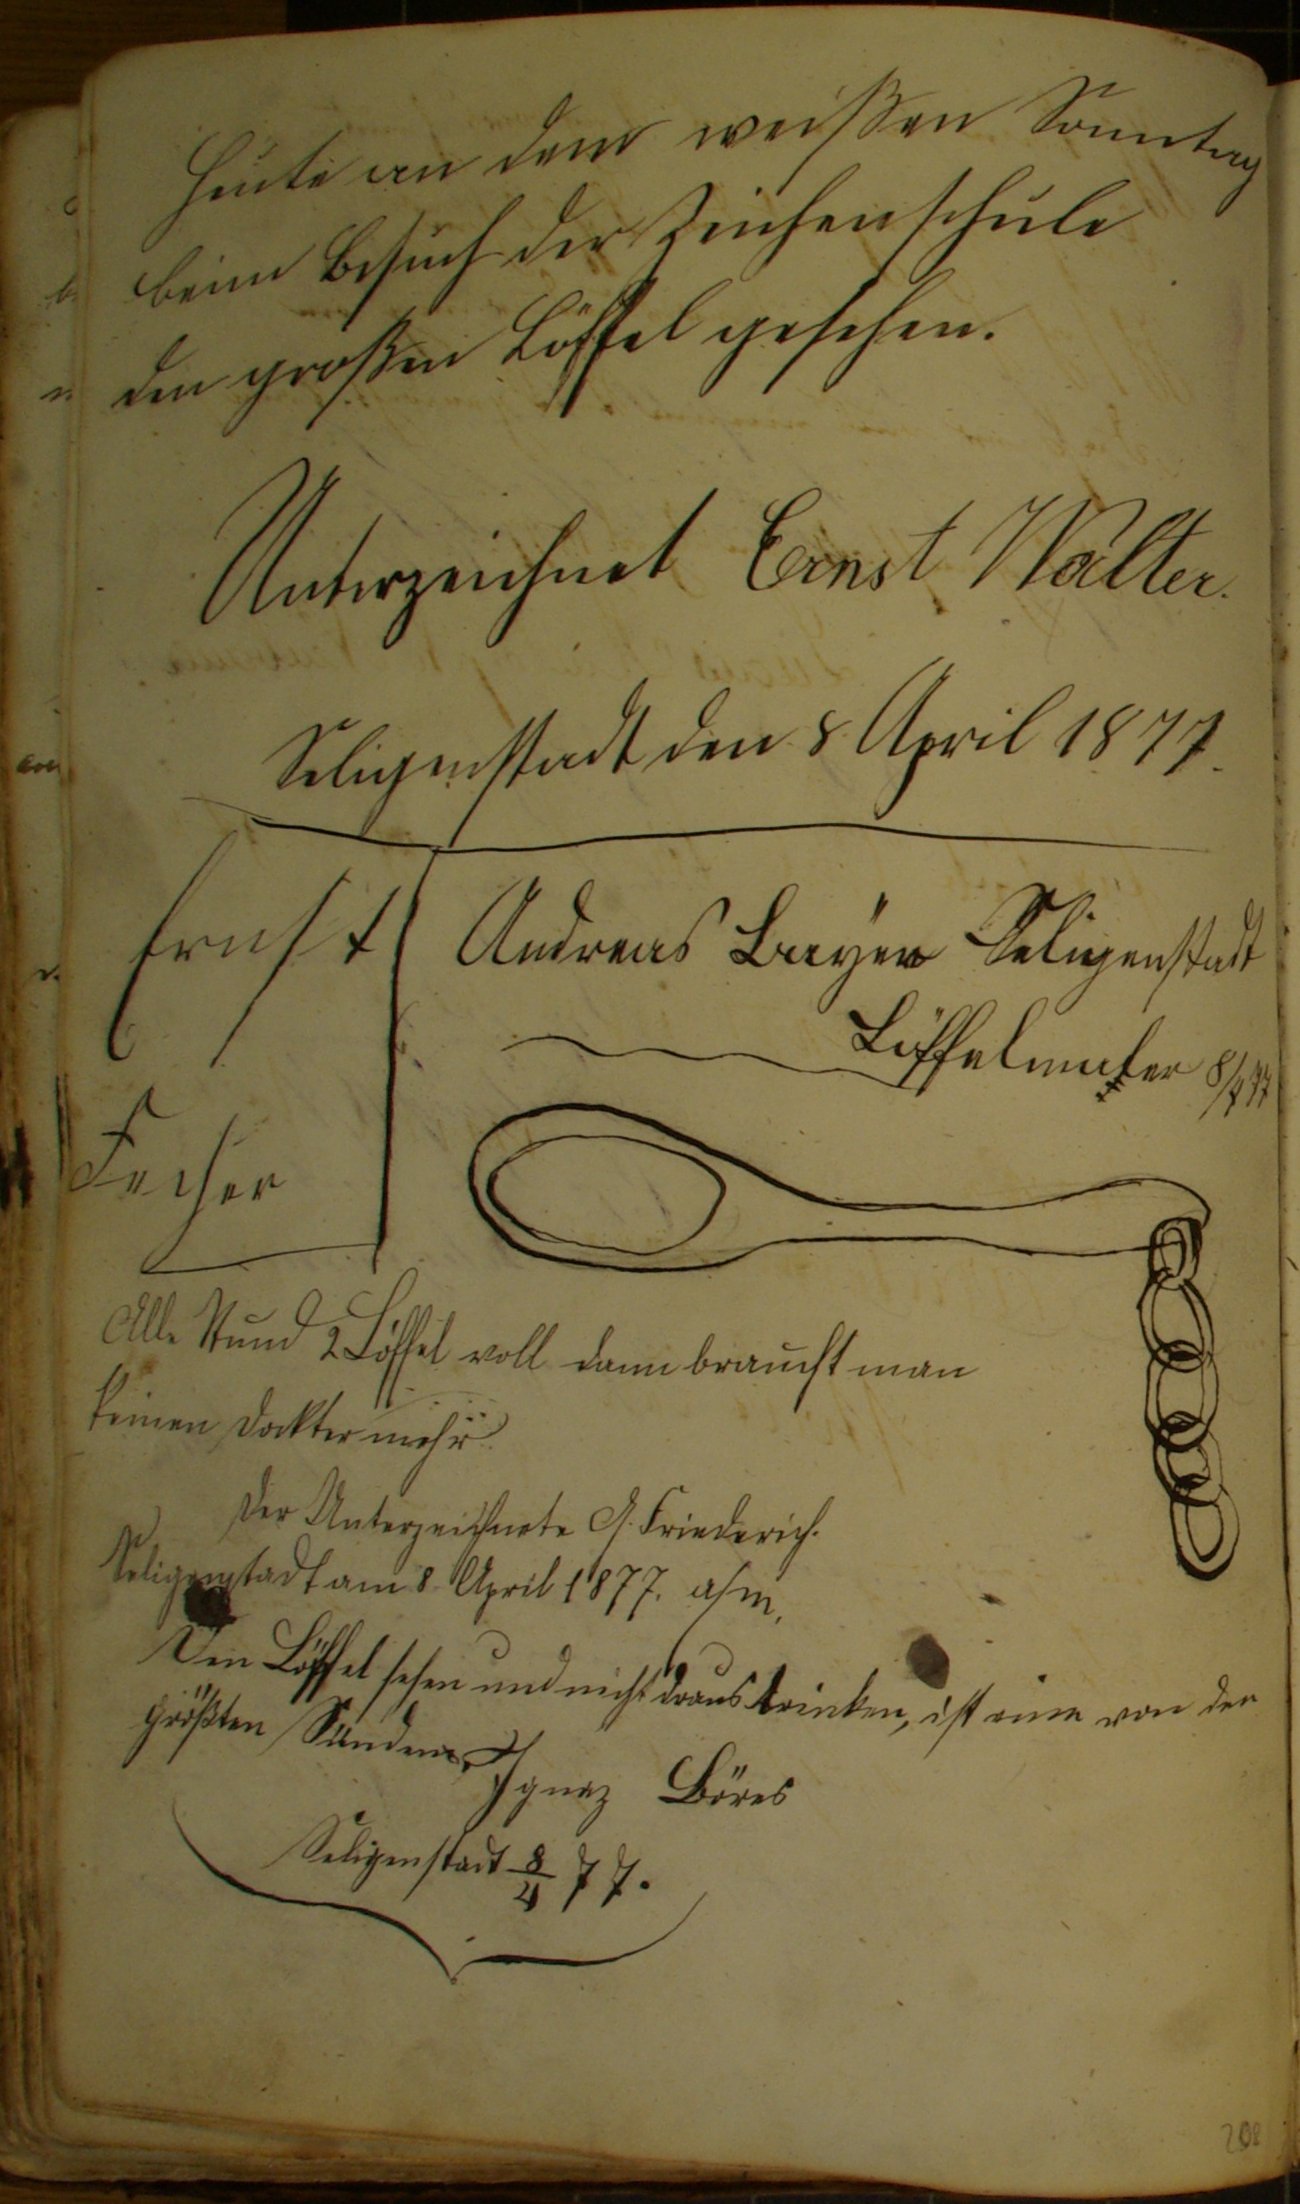 Heute an dem weißen Sonntag
beim Besuch der Zeichenschule
den großen Löffel gesehen.
Unterzeichnet Ernst Walter.
Seligenstadt den 8 April 1877.
Ernst
Fecher
Andreas Bayer Seligenstadt
Löffelmaler 8/4 77
Alle Stund 2 Löffel voll dann braucht man
keinen Dockter mehr.
Der Unterzeichnete A. Friederich.
Seligenstadt am 8 April 1877.
Den Löffel sehen und nicht draus trinken, ist eine von den
größten Sünden.
Ignaz Böres
Seligenstadt 8/4 77.
208